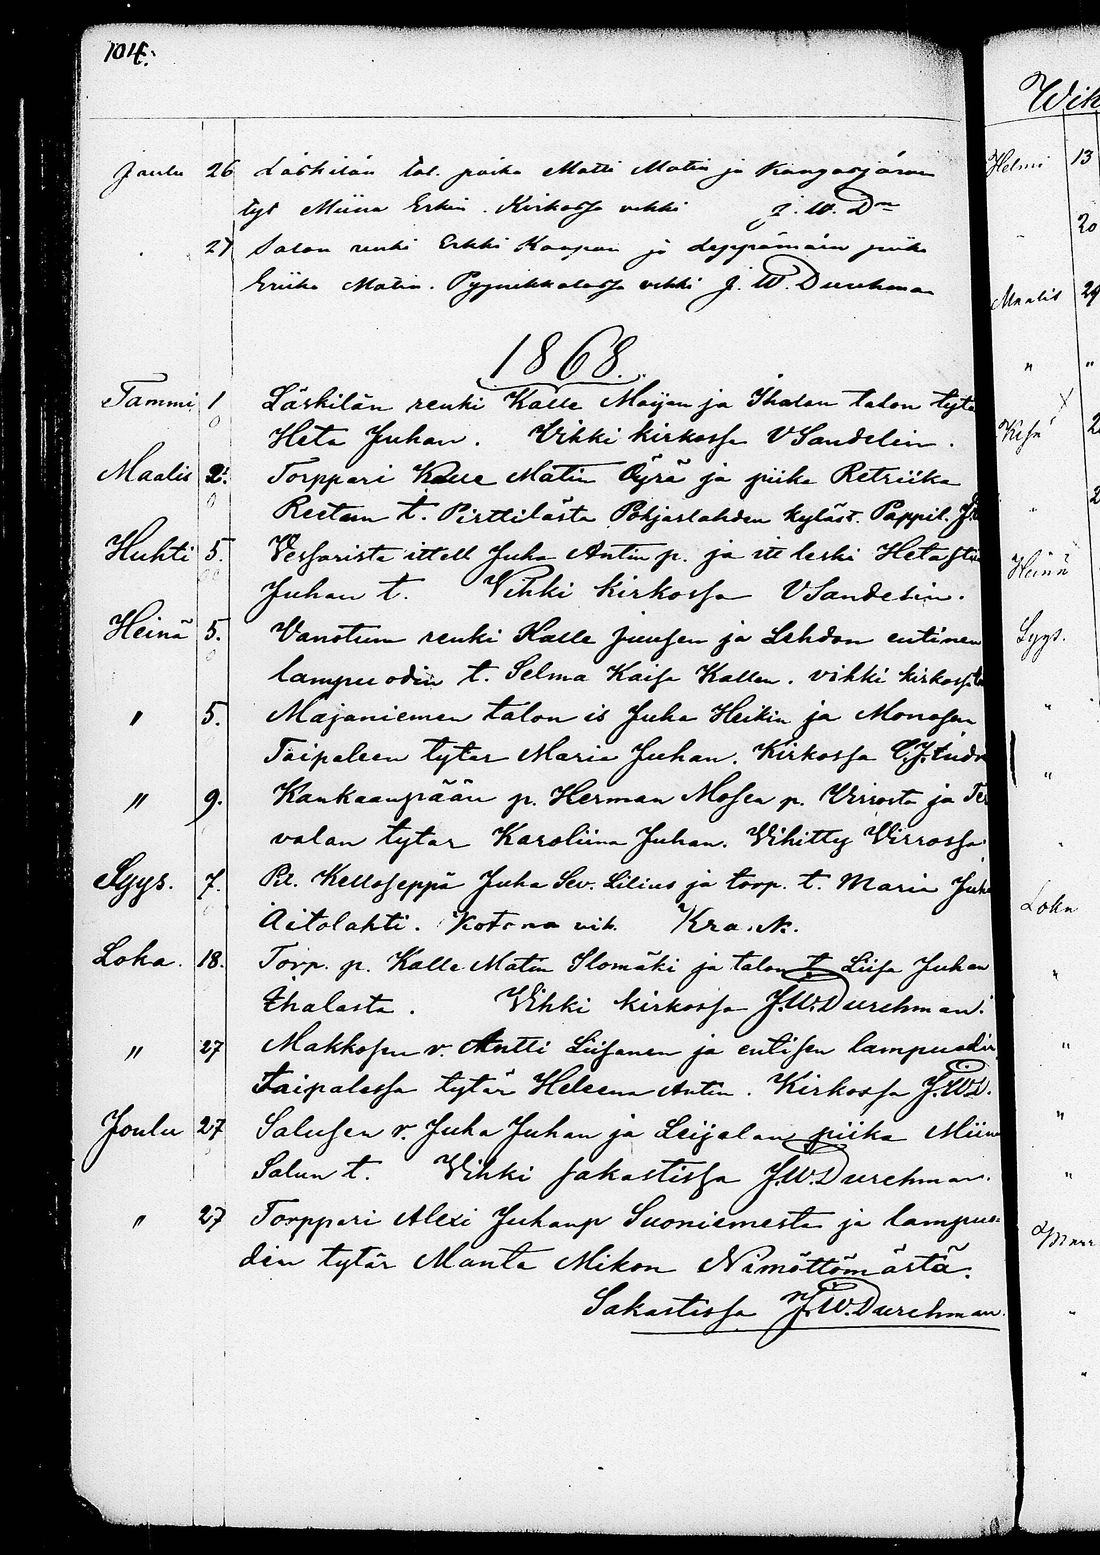 104.
Joulu 26 Läskilän tal. poika Matti Matin ja Kangasjärven
tyt Miina Erkin. Kirkossa vihki J. W. Dn
27 Salon renki Erkki Kaapon ja Leppämäen piika
Eriika Matin. Pyynikkalassa vihki J. W. Durchman
1868.
Tammi 1 Läskilän renki Kalle Maijan ja Ihalan talon tytä
Heta Juhan. Vihki kirkossa V Sandelin.
Maalis 2. Torppari Kalle Matin Öyrä ja piika Retriika
Reetun t. Pirttilästä Pohjaslahden kyläst. Pappil.
Huhti 5. Vessarista ittell Juha Antin p. ja itt leski Heta
Juhan t. Vihki kirkossa V Sandelin.
Heinä 5. Vanotun renki Kalle Juusen ja Lehdon entinen
lampuodin t. Selma Kaisa Kallen. vihki kirkossa
" 5. Majaniemen talon is Juha Heikin ja Monosen
Taipaleen tytar Maria Juhan. Kirkossa
" 9. Kankaanpään p. Herman Mosen p. Virrosta ja Ter
valan tytar Karoliina Juhan. Vihitty Virrossa
Syys. 7. Pit. Kelloseppä Juha Sev. Lilius ja torp. t. Maria Juha
Aitolahti. Kotona vih. Kra. .k.
Loka. 18. Torp. p. Kalle Matin Ilomäki ja talon t. Liisa Juhan
Ihalasta. Vihki kirkossa J.W.Durchman.
" 27 Makkosen v. Antti Liisanen ja entisen lampuodin
Taipalessa tytär Heleena Antin. Kirkossa J.W.D.
Joulu 27 Salusen r. Juha Juhan ja Leijalan piika Miina
Salun t. Vihki sakastissa J.W.Durchman.
" 27 Torppari Alexi Juhanp Suoniemesta ja lampuo-
din tytär Manta Mikon Nimöttömästä.
Sakastissa J.W.Durchman.
Wih
Helmi 13
20
Maalis 29
"
Kesä
Heinä
Syys.
"
"
Loka
"
"
"
"
Marr